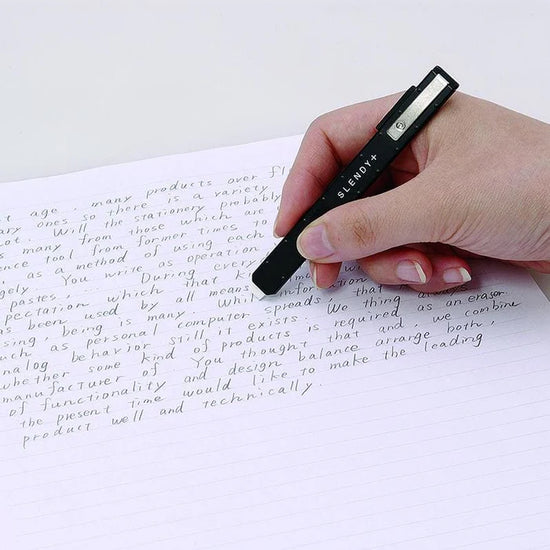 t age, many products over fl
ary ones so there is a variety
ot. Will the stationery probably
s many from those which are
ence tool from former times to
, as a method of using each
gely. You write as operation
pastes, During every
pectation which that ki
as been used by all means information
sing, being is many. While
uch as personal computer spreads, that
nalog behavior still it exists. We thing as an erasor
whether some kind of products is required as an
manufacturer of You thought that and, we combine
of functionality and design balance arrange both,
the present time would like to make the leading
product well and technically.
SLENDY+